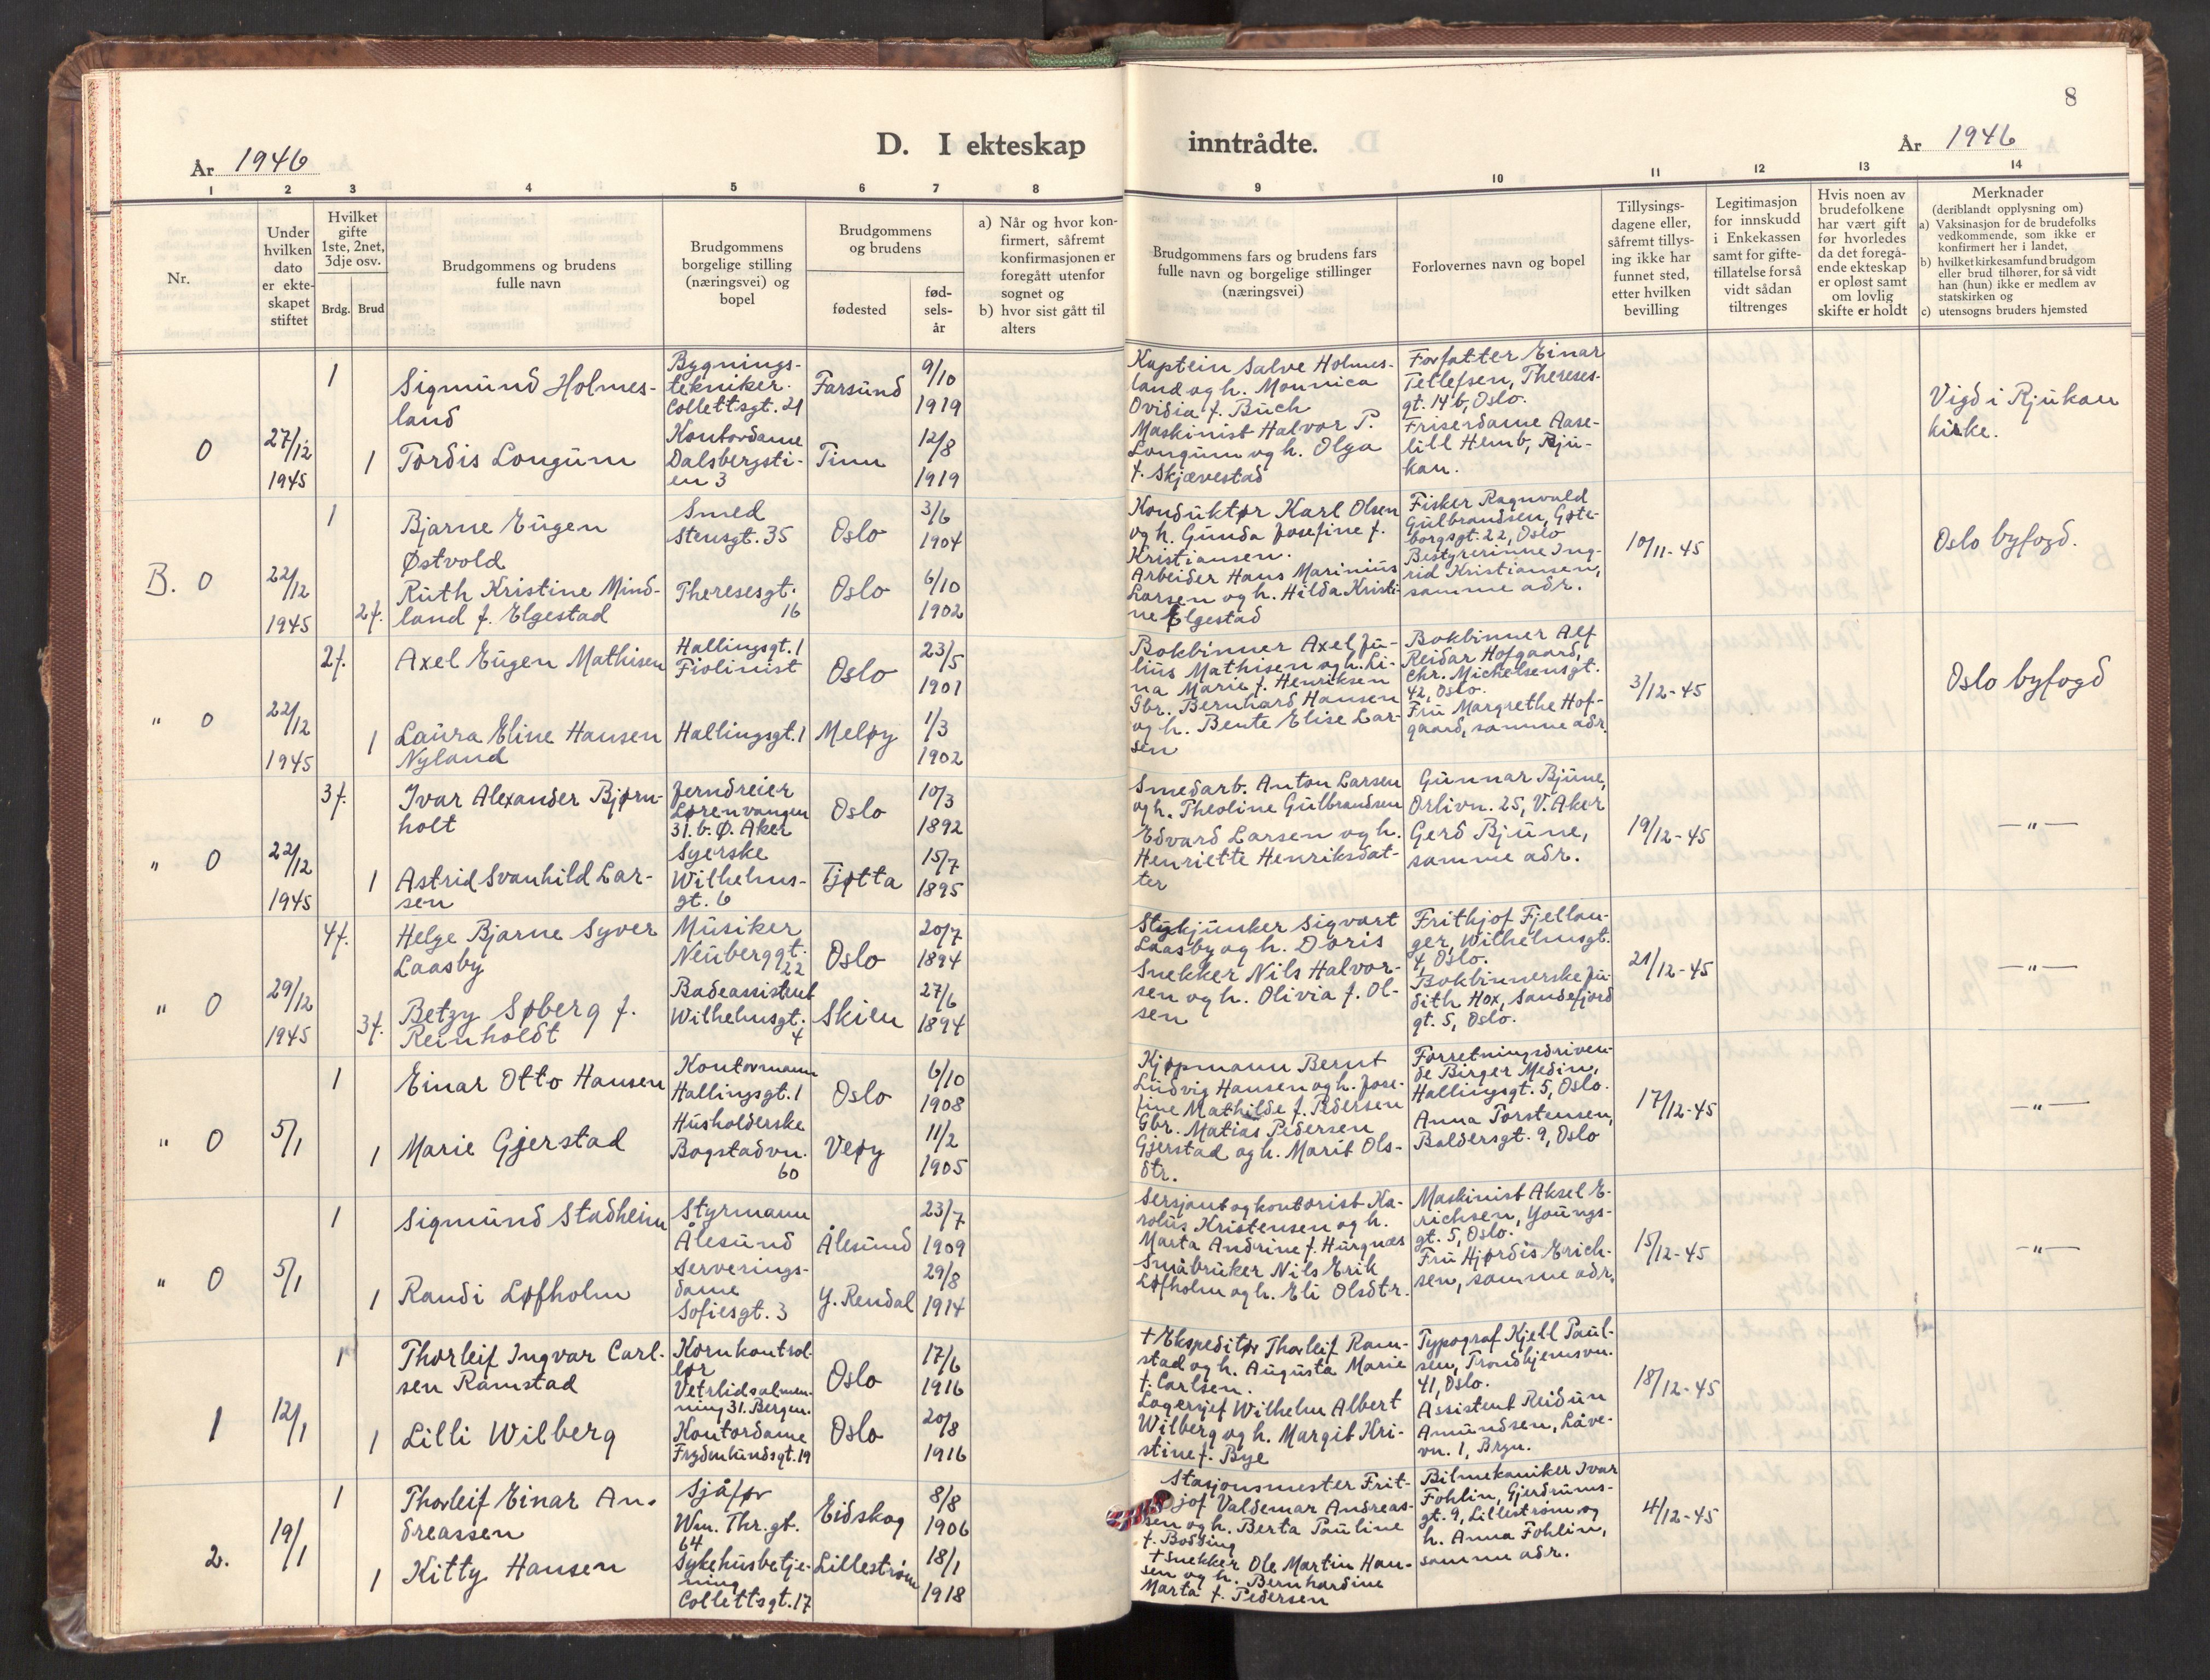 8
D. I ekteskap inntrådte.
År 1946
År 1946
1 2 3 4 5 6 7 8 9 10 11 12 13 14
Nr.
Under
hvilken
dato
er ekte-
skapet
stiftet
Hvilket
gifte
1ste, 2net,
3dje osv.
Brdg. Brud
Brudgommens og brudens
fulle navn
Brudgommens
borgelige stilling
(næringsvei) og
bopel
Brudgommens
og brudens
fødested
fød-
sels-
år
a) Når og hvor kon-
firmert, såfremt
konfirmasjonen er
foregått utenfor
sognet og
b) hvor sist gått til
alters
Brudgommens fars og brudens fars
fulle navn og borgelige stillinger
(næringsvei)
Forlovernes navn og bopel
Tillysings-
dagene eller,
såfremt tillys-
ing ikke har
funnet sted,
etter hvilken
bevilling
Legitimasjon
for innskudd
i Enkekassen
samt for gifte-
tillatelse for så
vidt sådan
tiltrenges
Hvis noen av
brudefolkene
har vært gift
før hvorledes
da det foregå-
ende ekteskap
er opløst samt
om lovlig
skifte er holdt
Merknader
(deriblandt opplysning om)
a) Vaksinasjon for de brudefolks
vedkommende, som ikke er
konfirmert her i landet,
b) hvilket kirkesamfund brudgom
eller brud tilhører, for så vidt
han (hun) ikke er medlem av
statskirken og
c) utensogns bruders hjemsted
O
27/12
1945
1
Sigmund Holmes-
land
Bygnings-
tekniker.
Collettsgt. 21
Farsund
9/10
1919
1
Tordis Longum
Kontordame
Dalsbergsti-
en 3
Tinn
12/8
1919
Kaptein Salve Holmes-
land og h. Monnica
Ovidia f. Buch
Maskinist Halvor P.
Longum og h. Olga
f. Skjævestad
Forfatter Einar
Tellefsen, Thereses-
gt. 14 b, Oslo.
Friserdame Aase-
lill Hemb, Rju-
kan.
Vigd i Rjukan
kirke.
B. O
22/12
1945
1
Bjarne Eugen
Østvold
Smed
Stensgt. 35
Oslo
3/6
1904
2f.
Ruth Kristine Mind-
land f. Elgestad
Theresesgt.
16
Oslo
6/10
1902
Konduktør Karl Olsen
og h. Gunda Josefine f.
Kristiansen.
Arbeider Hans Marinius
Larsen og h. Hilda Kristi-
ne Elgestad
Fisker Ragnvald
Gulbrandsen, Gøte-
borgsgt. 22, Oslo
Bestyrerinne Ing-
rid Kristiansen,
samme adr.
10/11-45
Oslo byfogd.
" O
22/12
1945
2f.
Axel Eugen Mathisen
Hallingsgt. 1
Fiolinist
Oslo
23/5
1901
1
Laura Eline Hansen
Nyland
Hallingsgt. 1
Meløy
1/3
1902
Bokbinner Axel Ju-
lius Mathisen og h. Li-
na Marie f. Henriksen
Gbr. Bernhard Hansen
og h. Bente Elise Lar-
sen
Bokbinner Alf
Reidar Hofgaard,
Chr. Michelsensgt.
42, Oslo.
Fru Margrethe Hof-
gaard, samme adr.
3/12-45
Oslo byfogd
" O
22/12
1945
3f.
Ivar Alexander Bjørn-
holt
Jerndreier
Lørenvangen
31. b. Ø. Aker
Oslo
10/3
1892
1
Astrid Svanhild Lar-
sen
Syerske
Wilhelms-
gt. 6
Tjøtta
15/7
1895
Smedarb. Anton Larsen
og h. Theoline Gulbrandsen
Edvard Larsen og h.
Henriette Henriksdat-
ter
Gunnar Bjune,
Orlivn. 25, V. Aker
Gerd Bjune,
samme adr.
19/12-45
— " —
" O
29/12
1945
4f.
Helge Bjarne Syver
Laasby
Musiker
Neuberggt.
22
Oslo
20/7
1894
3f.
Betzy Søberg f.
Reinholdt
Badeassistent
Wilhelmsgt.
4
Skien
27/6
1894
Stykjunker Sigvart
Laasby og h. Doris
Snekker Nils Halvor-
sen og h. Olivia f. Ol-
sen
Frithjof Fjellan-
ger, Wilhelmsgt.
4, Oslo.
Bokbinnerske Ju-
dith Hox, Sandefjord
gt. 5, Oslo.
21/12-45
— " —
" O
5/1
1
Einar Otto Hansen
Kontormann
Hallingsgt. 1
Oslo
6/10
1908
1
Marie Gjerstad
Husholderske
Bogstadvn.
60
Veøy
11/2
1905
Kjøpmann Bernt
Ludvig Hansen og h. Jose-
fine Mathilde f. Pedersen
Gbr. Matias Pedersen
Gjerstad og h. Marit Ols-
dtr.
Forretningsdriven-
de Birger Medin,
Hallingsgt. 5, Oslo.
Anna Torstensen,
Baldersgt. 9, Oslo
17/12-45
— " —
" O
5/1
1
Sigmund Stadheim
Styrmann
Ålesund
Ålesund
23/7
1909
1
Randi Løfholm
Serverings-
dame
Sofiesgt. 3
Y. Rendal
29/8
1914
Sersjant og kontorist Ka-
rolus Kristensen og h.
Marta Andrine f. Hurgnes
Småbruker Nils Erik
Løfholm og h. Eli Olsdtr.
Maskinist Aksel E-
richsen, Youngs-
gt. 5, Oslo.
Fru Hjørdis Erich-
sen, samme adr.
15/12-45
— " —
1
12/1
1
Thorleif Ingvar Carl-
sen Ramstad
Kornkontrol-
lør
Vetrlidsalmen-
ning 31. Bergen.
Oslo
17/6
1916
1
Lilli Wilberg
Kontordame
Frydenlundsgt. 19
Oslo
20/8
1916
+ Ekspeditør Thorleif Ram-
stad og h. Augusta Marie
f. Carlsen.
Lagersjef Wilhelm Albert
Wilberg og h. Margit Kri-
stine f. Bye
Typograf Kjell Paul-
sen, Trondhjemsvn.
41, Oslo.
Assistent Reidun
Amundsen, Låve-
vn. 1, Bryn.
18/12-45
2.
19/1
1
Thorleif Einar An-
dreassen
Sjåfør
Wm. Thr. gt.
64
Eidskog
8/8
1906
1
Kitty Hansen
Sykehusbetje-
ning
Collettsgt. 17
Lillestrøm
18/1
1918
Stasjonsmester Frit-
jof Valdemar Andreas-
sen og h. Berta Pauline
f. Bodding
+ Snekker Ole Martin Han-
sen og h. Bernhardine
Marta f. Pedersen
Bilmekaniker Ivar
Fohlin, Gjerdrums-
gt. 9, Lillestrøm og
h. Anna Fohlin,
samme adr.
4/12-45